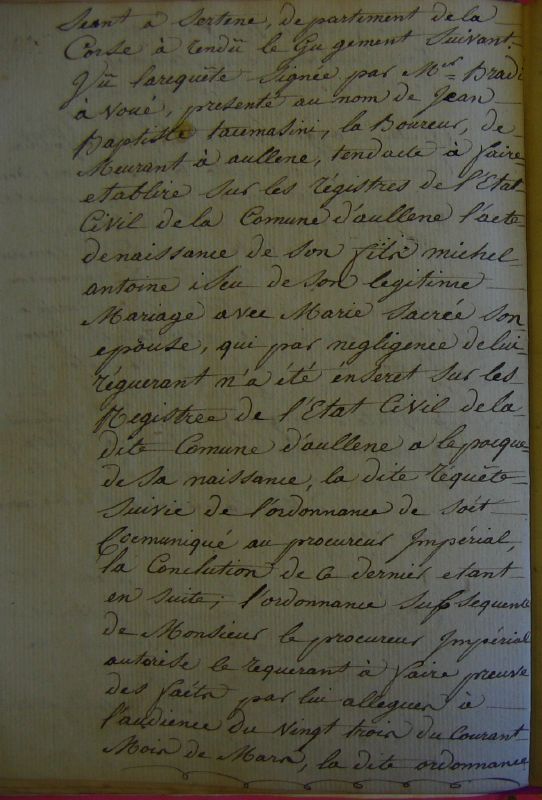 Seant à Sertene, departement de la
Corse à rendü le Gugement suivant.
Vü larequête signée par Mr. Bradi
à voué, presenté au nom de Jean
Baptiste taumasini, la Boureur, de
Meurant à aullene, tendacte à faire
etablire sur les régistres de l'Etat
Civil dela Comune d'aullene l'acte
denaissance de son fils michel
antoine iseu de son legitime
Mariage avec Marie Sacrée son
epouse, qui par negligence delui
réguerant n'a été enseret sur les
Registree de l'Etat Civil dela
dite Comune d'aullene a lepoque
de sa naissance, la dite réquête
suivie de l'ordonnance de soit
Cocmuniqué au procureur Impérial,
la Conclution de ce dernier etant
en suite; l'ordonnance subsequente
de Monsieur le procureur Impérial
autorise le requerant à faire preuve
des faits par lui alleguer à
l'audience du vingt trois du Courant
Mois de Mars, la dite ordonnance